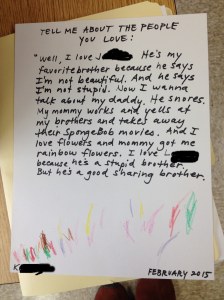 TELL ME ABOUT THE PEOPLE
YOU LOVE:
"Well, I love J He's my
favorite brother because he says
I'm not beautiful. And he says
I'm not stupid. Now I wanna
talk about my daddy. He snores.
My mommy works and yells at
my brothers and takes away
their SpongeBob movies. And I
love flowers and mommy got me
rainbow flowers. I love L
because he's a stupid brother.
But he's a good sharing brother.
K
FEBRUARY 2015